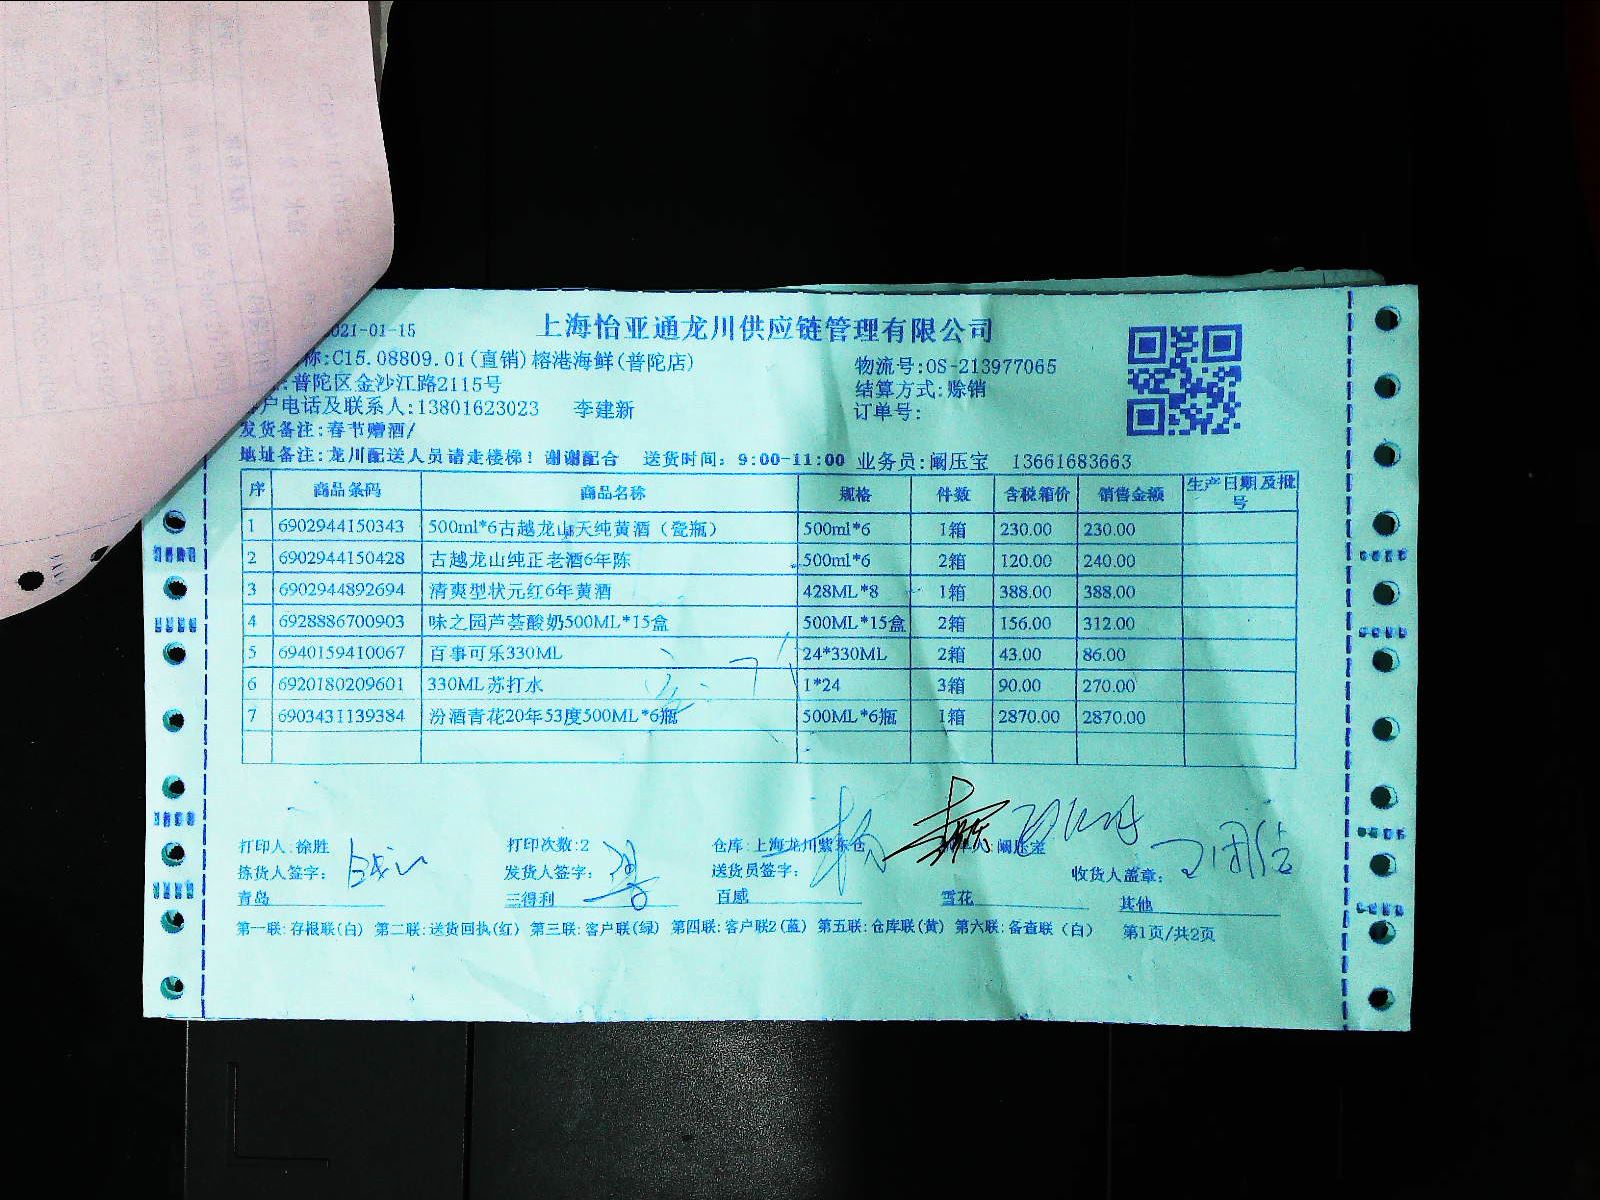 021-01-15
上海怡亚通龙川供应链管理有限公司
称:C15.08809.01(直销)榕港海鲜(普陀店)
物流号:OS-213977065
:普陀区金沙江路2115号
结算方式:赊销
户电话及联系人:13801623023 李建新
订单号:
发货备注:春节赠酒/
地址备注:龙川配送人员请走楼梯！谢谢配合 送货时间：9:00-11:00 业务员:阚压宝 13661683663
序 商品条码 商品名称 规格 件数 含税箱价 销售金额 生产日期及批号
1 6902944150343 500ml*6古越龙山天纯黄酒（瓷瓶） 500ml*6 1箱 230.00 230.00
2 6902944150428 古越龙山纯正老酒6年陈 500ml*6 2箱 120.00 240.00
3 6902944892694 清爽型状元红6年黄酒 428ML*8 1箱 388.00 388.00
4 6928886700903 味之园芦荟酸奶500ML*15盒 500ML*15盒 2箱 156.00 312.00
5 6940159410067 百事可乐330ML 24*330ML 2箱 43.00 86.00
6 6920180209601 330ML苏打水 1*24 3箱 90.00 270.00
7 6903431139384 汾酒青花20年53度500ML*6瓶 500ML*6瓶 1箱 2870.00 2870.00
打印人:徐胜 打印次数:2 仓库:上海龙川紫东仓 人:阚压宝
拣货人签字： 发货人签字： 送货员签字： 收货人盖章：
青岛 三得利 百威 雪花 其他
第一联:存根联(白) 第二联:送货回执(红) 第三联:客户联(绿) 第四联:客户联2(蓝) 第五联:仓库联(黄) 第六联:备查联（白） 第1页/共2页